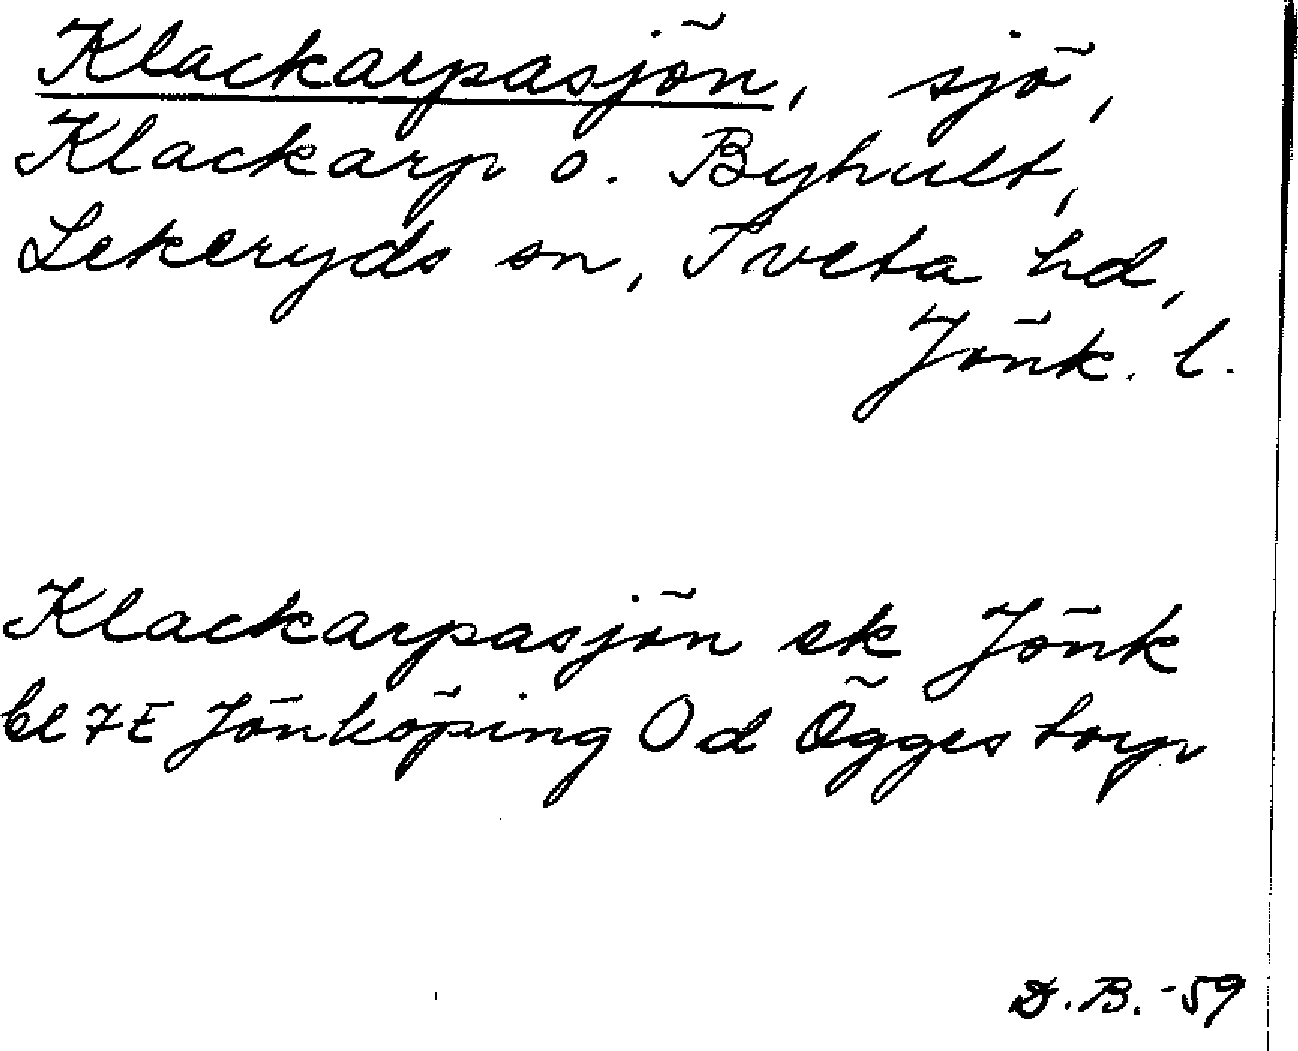 Klackarpasjön, sjö,
Klackarp o. Byhult,
Lekeryds sn, Tveta hd,
Jönk. l.
Klackarpasjön ek Jönk
bl 7E Jönköping Od Öggestorp
D.B. -59